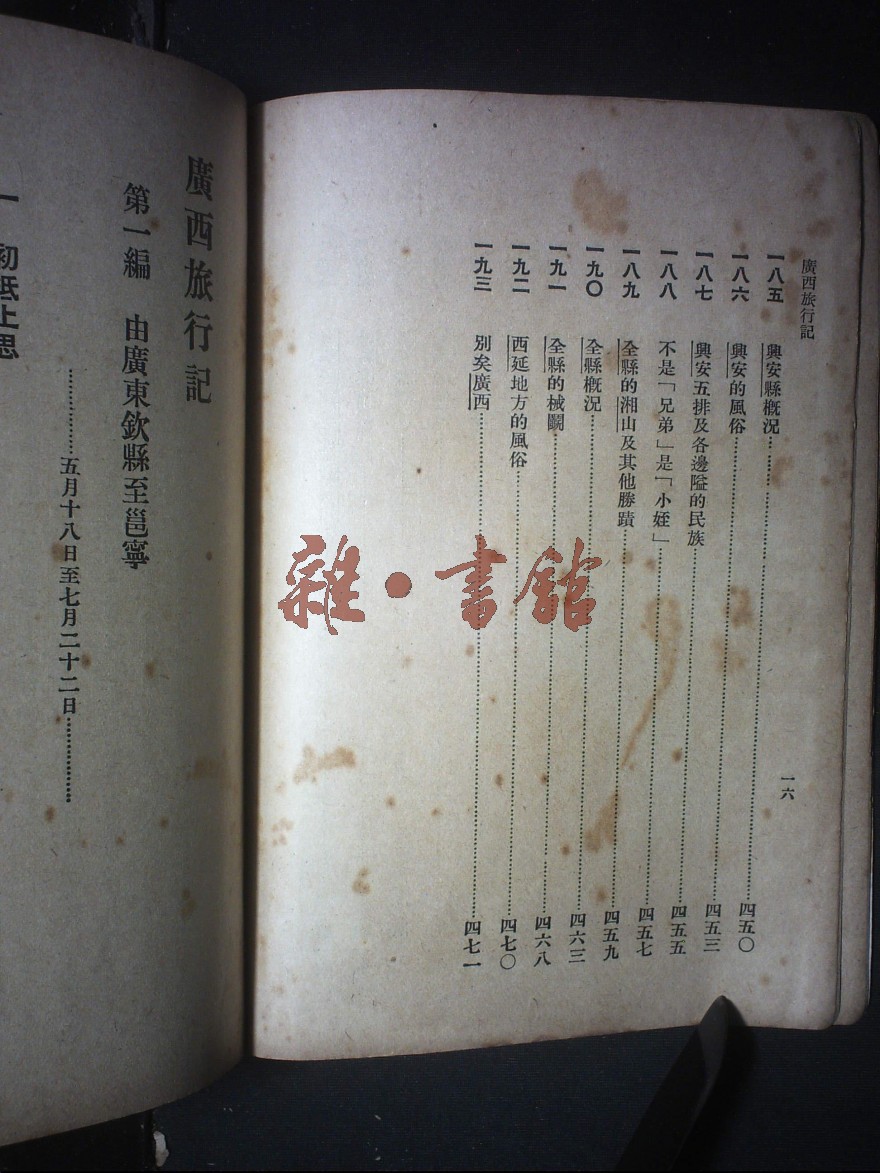 廣西旅行記
一六
一八五 興安縣概況……四五〇
一八六 興安的風俗……四五三
一八七 興安五排及各邊隘的民族……四五五
一八八 不是「兄弟」是「小姪」……四五七
一八九 全縣的湘山及其他勝蹟……四五九
一九〇 全縣概況……四六三
一九一 全縣的械鬭……四六八
一九二 西延地方的風俗……四七〇
一九三 別矣廣西……四七一
雜·書館
廣西旅行記
第一編 由廣東欽縣至邕寧
……五月十八日至七月二十二日……
一 初抵上思